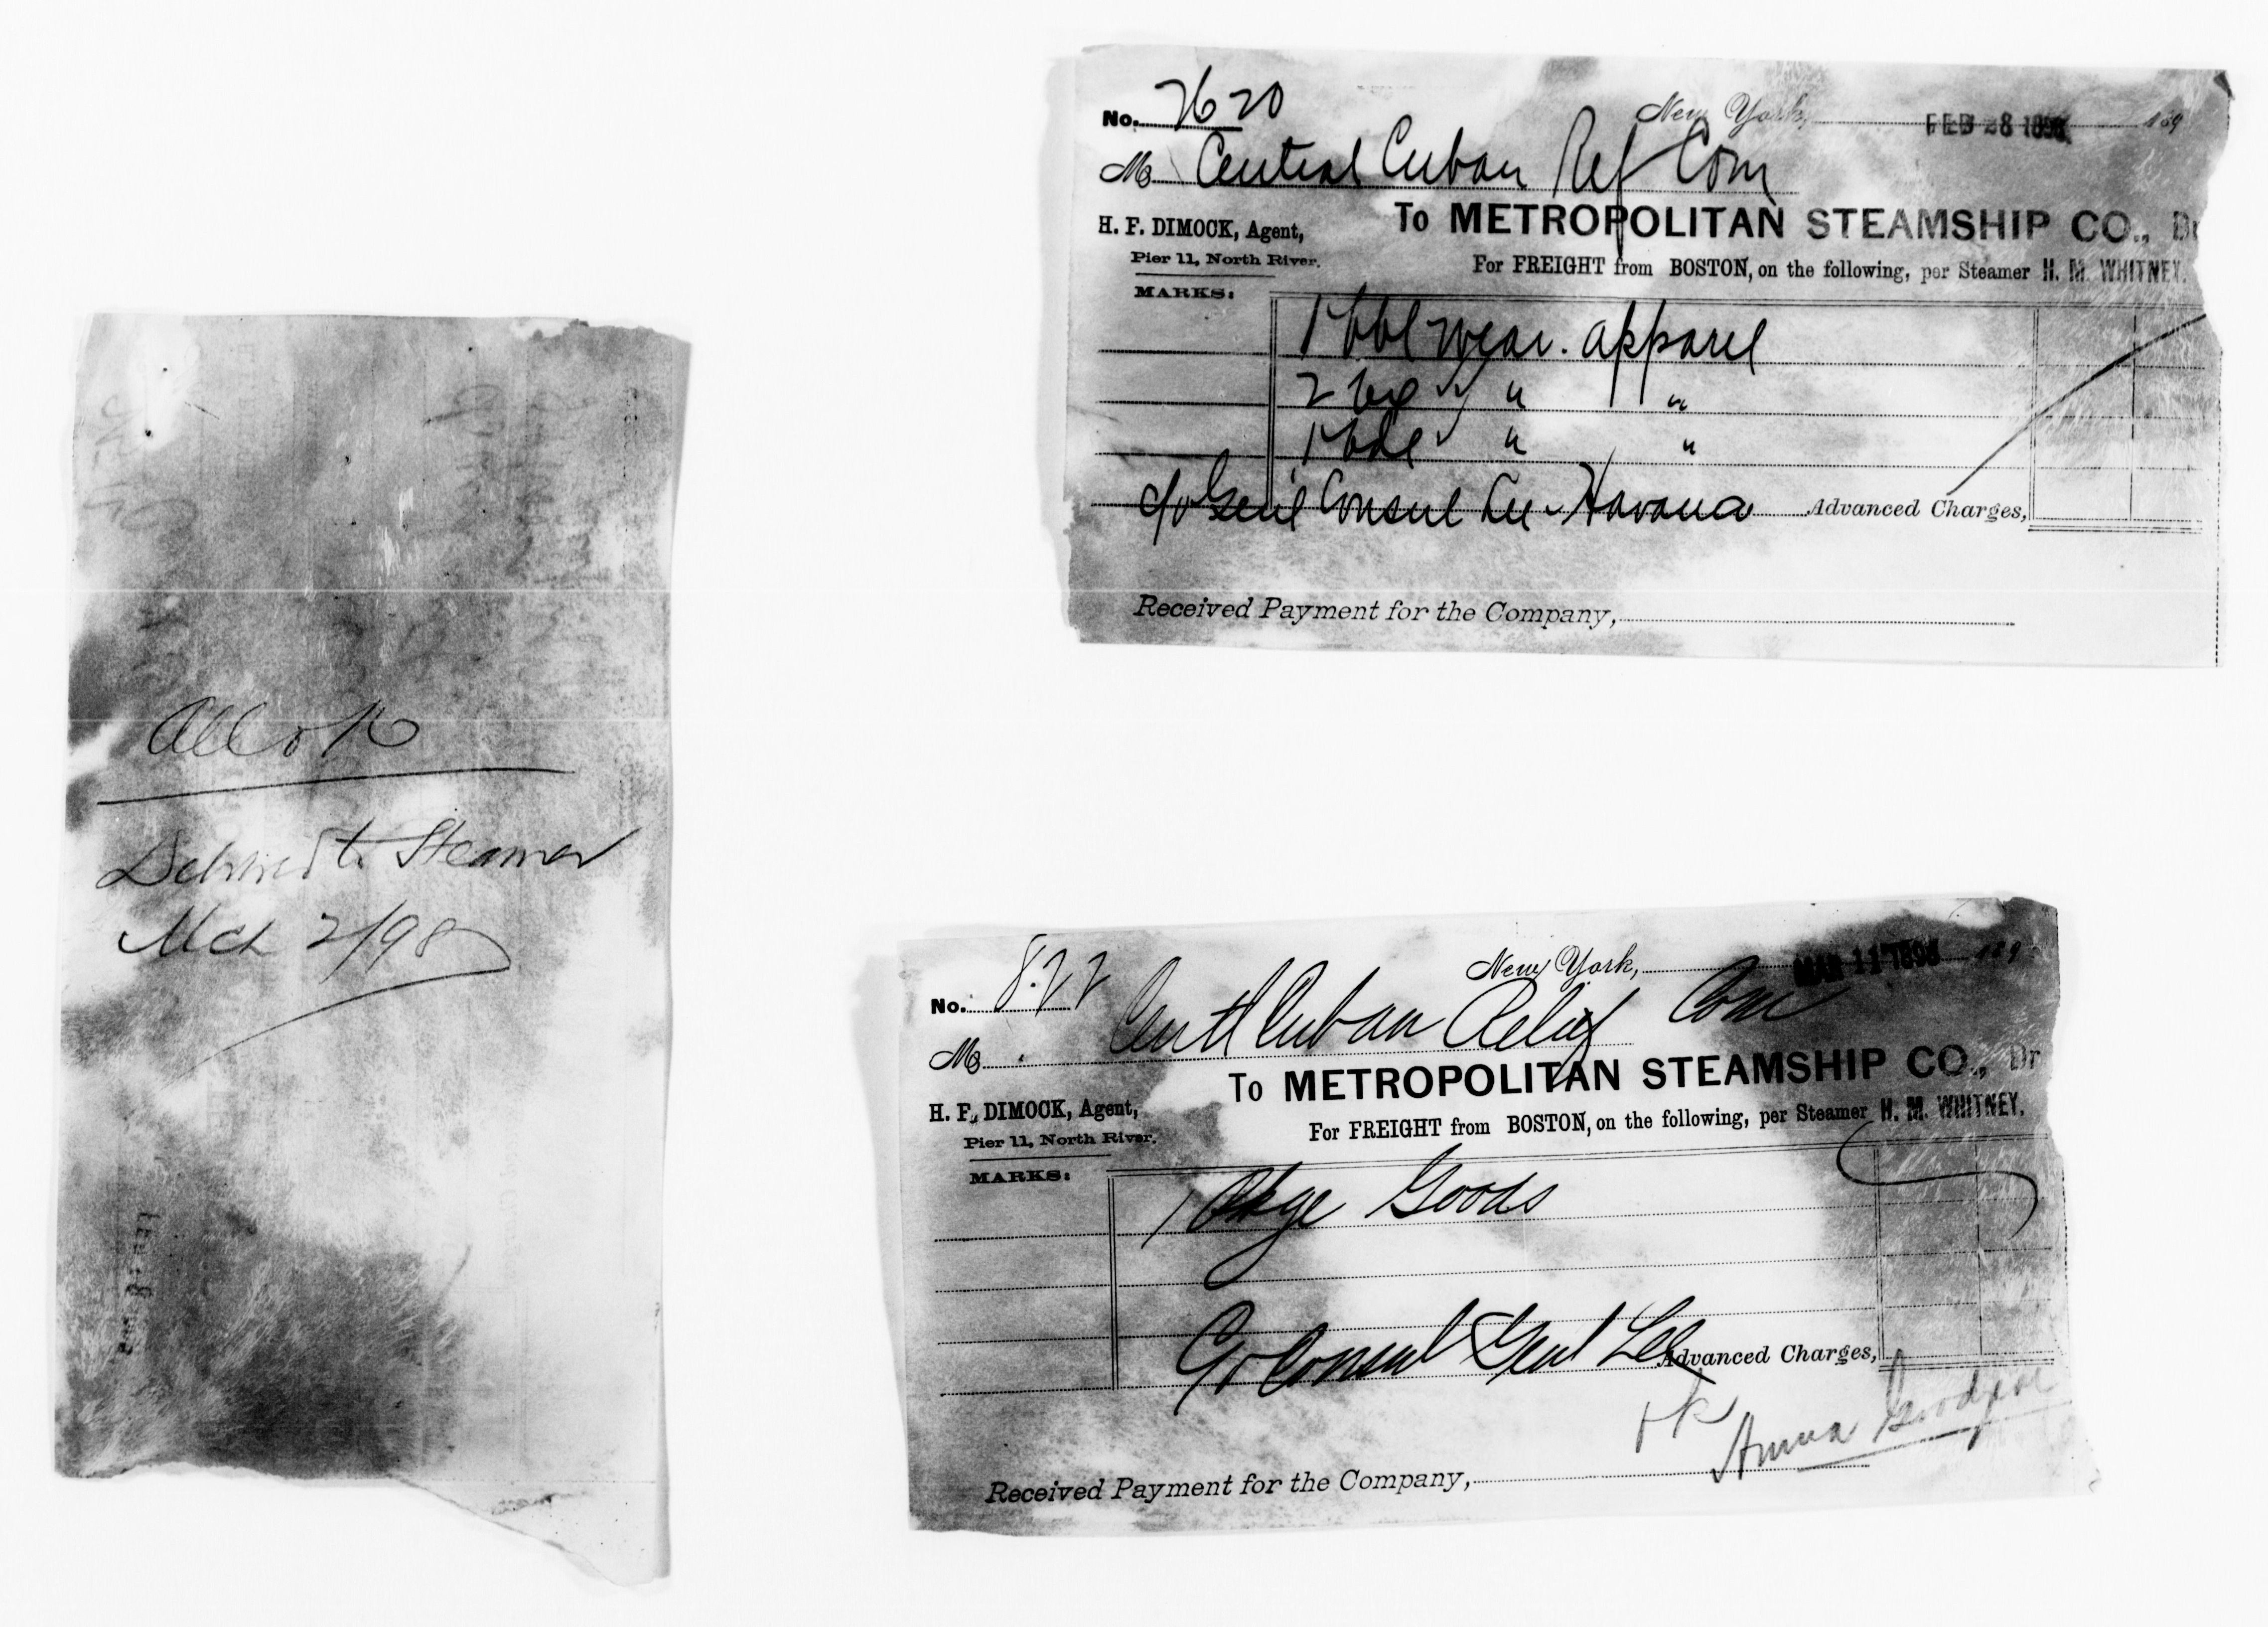 All o k
Deliverd to Steamer
Mch 2/98
No. 7620
New York, FEB 28 1898 189
Ms Central Cuban Ref Com
To METROPOLITAN STEAMSHIP CO., Dr
H. F. DIMOCK, Agent,
Pier 11, North River.
For FREIGHT from BOSTON, on the following, per Steamer H. M. WHITNEY.
MARKS:
1 bbl wear. apparel
2 bx " "
1 bdl " "
c/o Genl Consul Lee - Havana
Advanced Charges,
Received Payment for the Company,
New York, MAR 11 1898 189
No. 822
Ms Centl Cuban Relief Com
To METROPOLITAN STEAMSHIP CO., Dr
H. F. DIMOCK, Agent,
Pier 11, North River.
For FREIGHT from BOSTON, on the following, per Steamer H. M. WHITNEY.
MARKS:
1 Pkge Goods
C/o Consul Genl Lee
Advanced Charges,
ok
Anna
Received Payment for the Company,